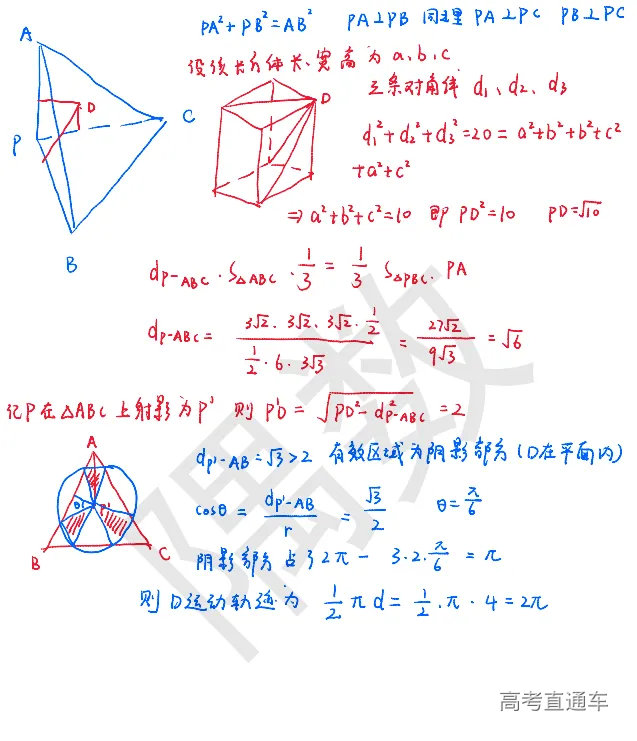 PA²+PB²=AB² PA⊥PB 同理 PA⊥PC PB⊥PC
设该长方体长、宽高为 a、b、c
三条对角线 d₁、d₂、d₃
d₁²+d₂²+d₃²=20=a²+b²+b²+c²
+a²+c²
⇒a²+b²+c²=10 即 PD²=10 PD=√10
A
D
P
C
B
D
d_{P-ABC}·S_{△ABC}·1/3=1/3 S_{△PBC}·PA
d_{P-ABC}=(3√2·3√2·3√2·1/2)/(1/2·6·3√3)=27√2/9√3=√6
记P在△ABC上射影为P' 则P'D=√(PD²-d²_{P-ABC})=2
d_{P'-AB}=√3>2 有效区域为阴影部分(D在平面内)
cosθ=d_{P'-AB}/r=√3/2 θ=π/6
阴影部分占了2π-3·2·π/6=π
则D运动轨迹为 1/2πd=1/2·π·4=2π
A
θ
P'
B
C
偶数
高考直通车